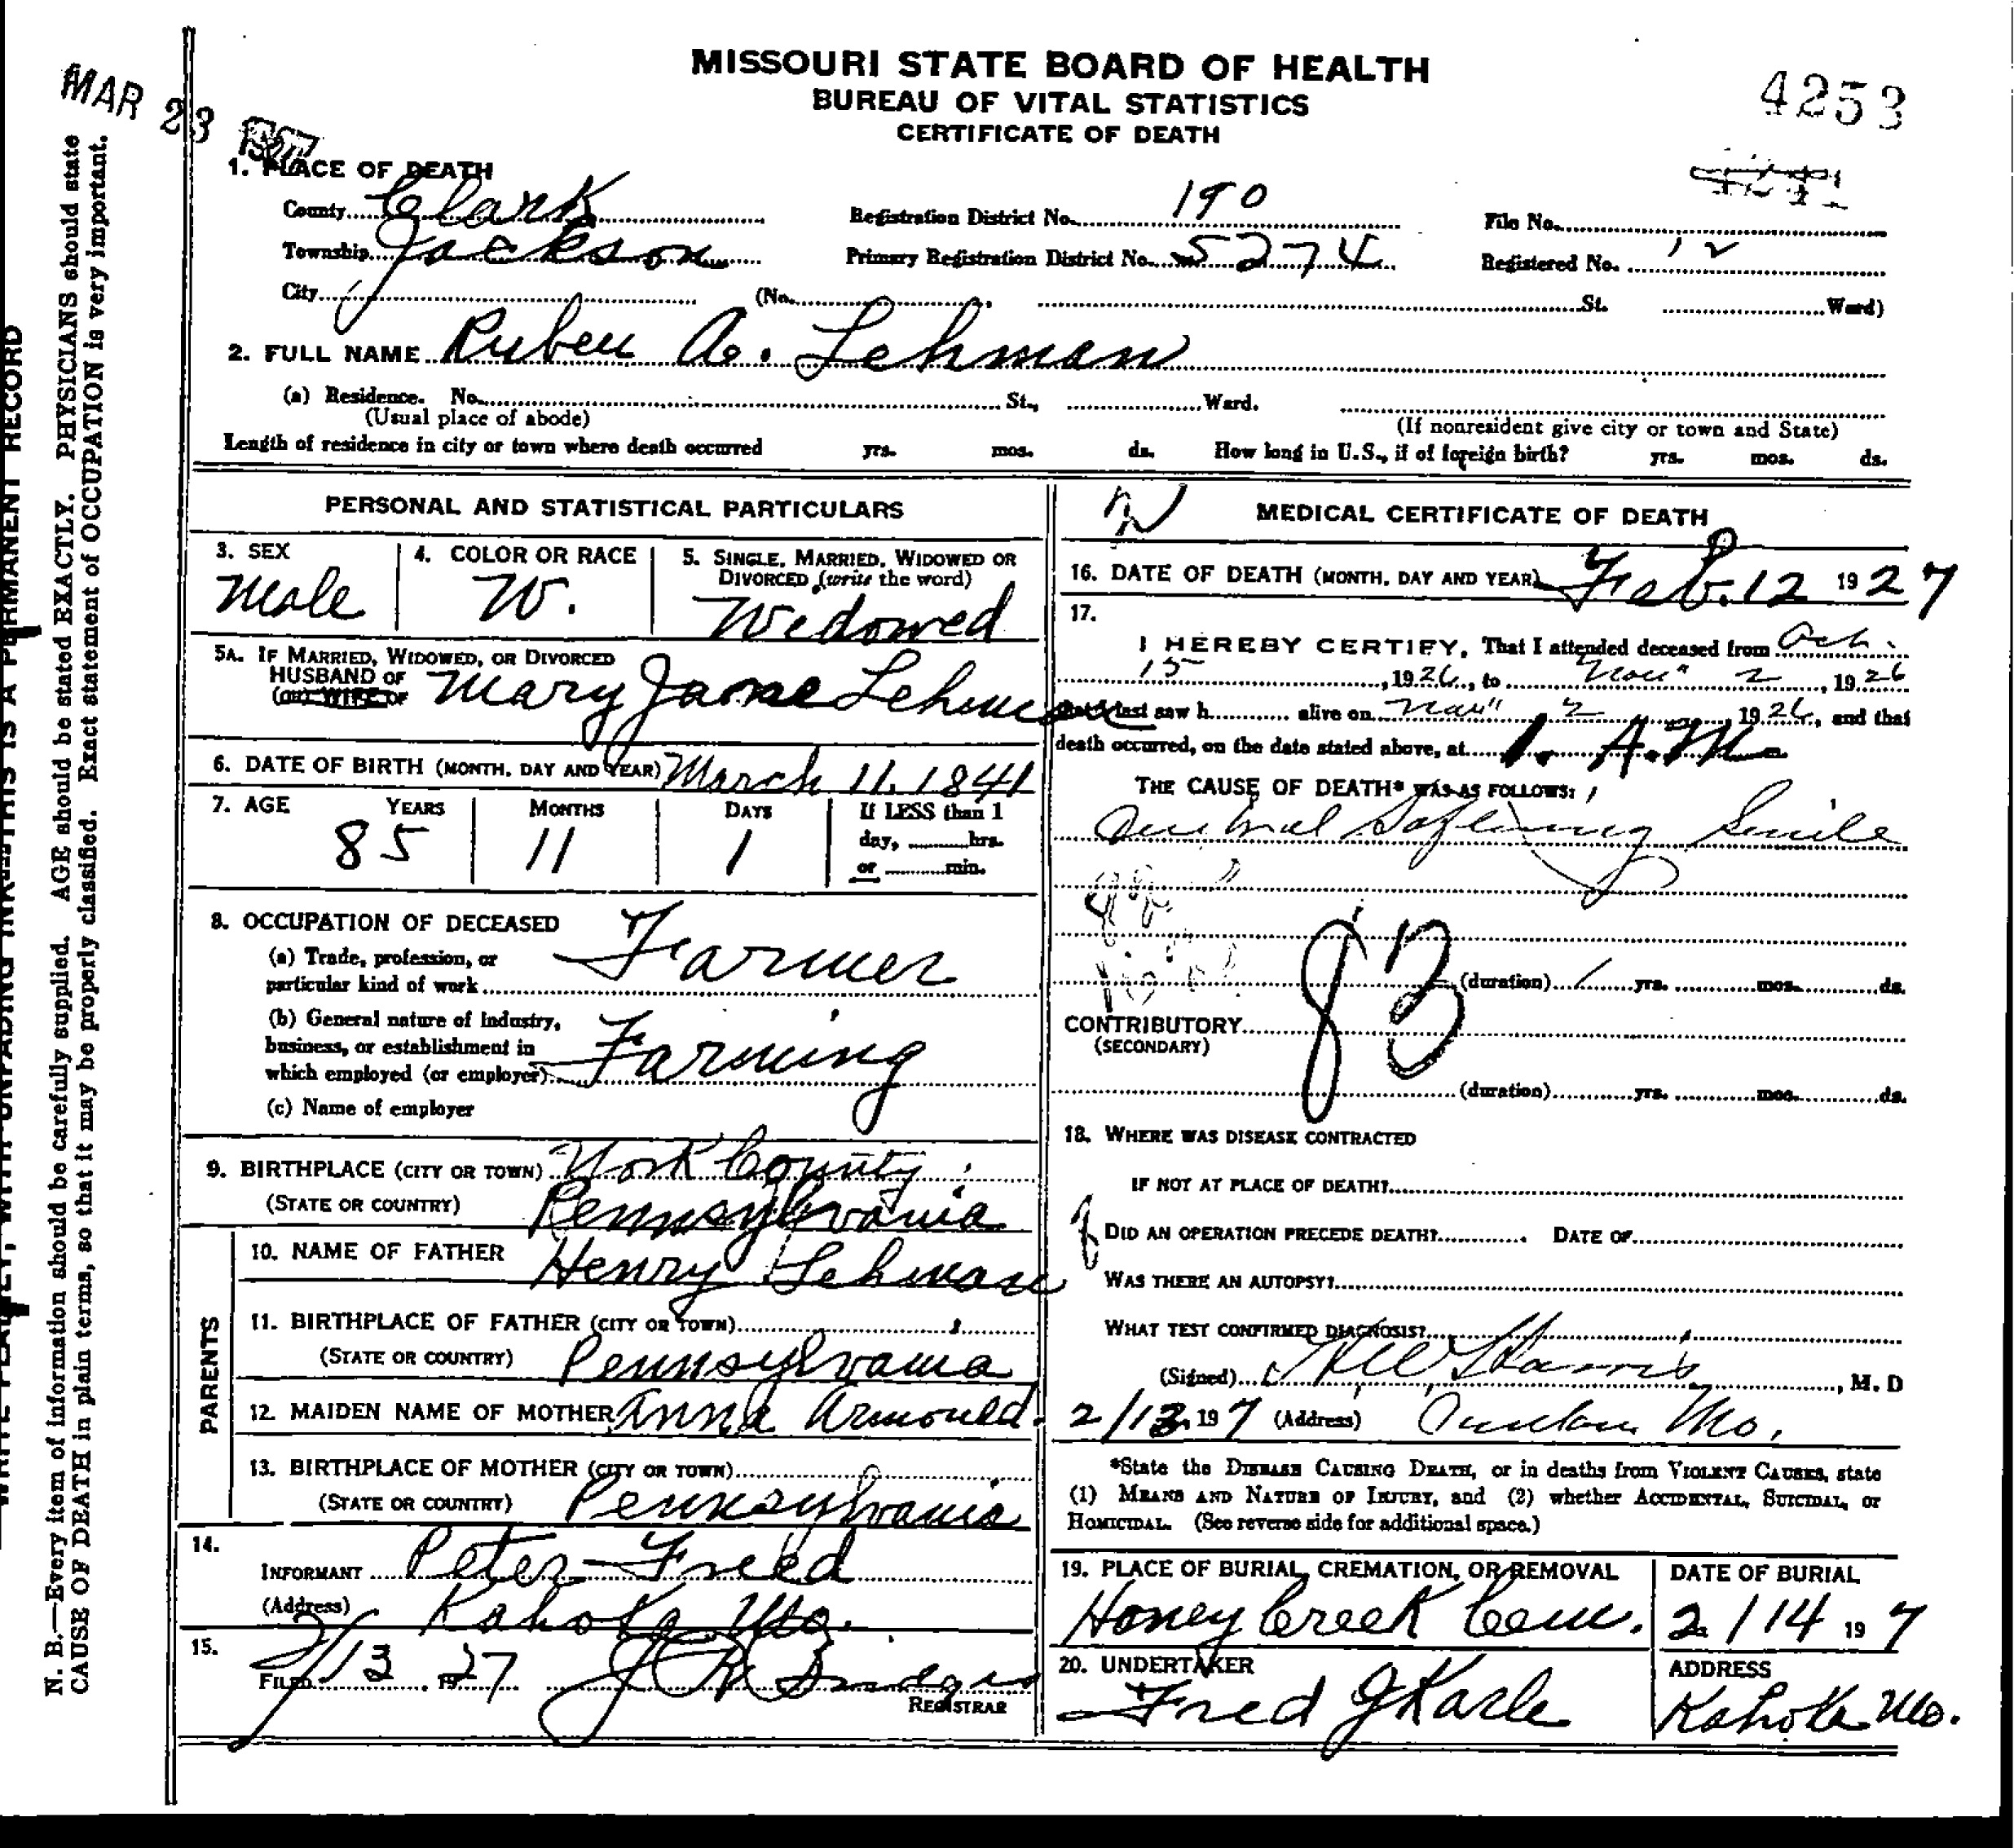 MISSOURI STATE BOARD OF HEALTH
BUREAU OF VITAL STATISTICS
CERTIFICATE OF DEATH
MAR 23
4253
1. PLACE OF DEATH
County Clark Registration District No. 190 File No.
Township Jackson Primary Registration District No. 5274 Registered No. 12
City (No. St. Ward)
2. FULL NAME Ruben A. Lehman
(a) Residence. No. St., Ward.
(Usual place of abode) (If nonresident give city or town and State)
Length of residence in city or town where death occurred yrs. mos. ds. How long in U.S., if of foreign birth? yrs. mos. ds.
PERSONAL AND STATISTICAL PARTICULARS
3. SEX 4. COLOR OR RACE 5. SINGLE, MARRIED, WIDOWED OR
DIVORCED (write the word)
Male W. Widowed
5A. IF MARRIED, WIDOWED, OR DIVORCED
HUSBAND OF
(OR) WIFE OF Mary Jane Lehman
6. DATE OF BIRTH (MONTH, DAY AND YEAR) March 11, 1841
7. AGE YEARS MONTHS DAYS If LESS than 1
day, hrs.
or min.
85 11 1
8. OCCUPATION OF DECEASED
(a) Trade, profession, or
particular kind of work Farmer
(b) General nature of Industry,
business, or establishment in
which employed (or employer) Farming
(c) Name of employer
9. BIRTHPLACE (CITY OR TOWN) York County
(STATE OR COUNTRY) Pennsylvania
PARENTS
10. NAME OF FATHER Henry Lehman
11. BIRTHPLACE OF FATHER (CITY OR TOWN)
(STATE OR COUNTRY) Pennsylvania
12. MAIDEN NAME OF MOTHER Anna Armould.
13. BIRTHPLACE OF MOTHER (CITY OR TOWN)
(STATE OR COUNTRY) Pennsylvania
14.
INFORMANT Peter Freed
(Address) Kahoka Mo.
15.
FILED 2/13 1927 J R
REGISTRAR
MEDICAL CERTIFICATE OF DEATH
16. DATE OF DEATH (MONTH, DAY AND YEAR) Feb. 12 1927
17.
I HEREBY CERTIFY, That I attended deceased from Oct.
15, 1926, to Nov 2, 1926
that I last saw h alive on Nov 2, 1926, and that
death occurred, on the date stated above, at 1. A.M.
THE CAUSE OF DEATH* WAS AS FOLLOWS:
Softening Senile
83
(duration) 1 yrs. mos. ds.
CONTRIBUTORY
(SECONDARY)
(duration) yrs. mos. ds.
18. WHERE WAS DISEASE CONTRACTED
IF NOT AT PLACE OF DEATH?
DID AN OPERATION PRECEDE DEATH? DATE OF
WAS THERE AN AUTOPSY?
WHAT TEST CONFIRMED DIAGNOSIS?
(Signed) Harris, M. D
2/13, 197 (Address) Mo.
*State the DISEASE CAUSING DEATH, or in deaths from VIOLENT CAUSES, state
(1) MEANS AND NATURE OF INJURY, and (2) whether ACCIDENTAL, SUICIDAL, or
HOMICIDAL. (See reverse side for additional space.)
19. PLACE OF BURIAL, CREMATION, OR REMOVAL DATE OF BURIAL
Honey Creek Cem. 2/14 197
20. UNDERTAKER ADDRESS
Fred J Karle Kahoka Mo.
N. B.—Every item of information should be carefully supplied. AGE should be stated EXACTLY. PHYSICIANS should state
CAUSE OF DEATH in plain terms, so that it may be properly classified. Exact statement of OCCUPATION is very important.